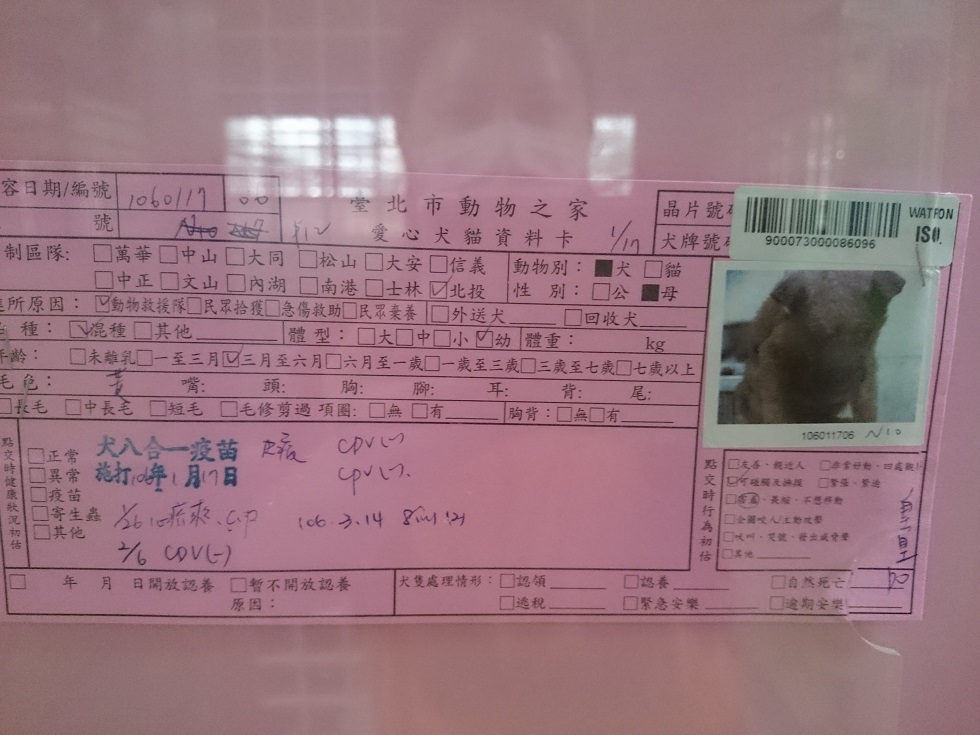 容日期/編號 1060117 00
臺北市動物之家
晶片號
WATRON
ISO.
900073000086096
號
愛心犬貓資料卡 1/17
犬牌號
制區隊: □萬華□中山□大同□松山□大安□信義
□中正□文山□內湖□南港□士林☑北投
動物別:■犬□貓
性別:□公■母
所原因:☑動物救援隊□民眾拾獲□急傷救助□民眾棄養□外送犬□回收犬
種:☑混種□其他 體型:□大□中□小☑幼 體重: kg
年齡:□未離乳□一至三月☑三月至六月□六月至一歲□一歲至三歲□三歲至七歲□七歲以上
毛色:黃 嘴: 頭: 胸: 腳: 耳: 背: 尾:
□長毛□中長毛□短毛□毛修剪過 項圈:□無□有 胸背:□無□有
106011706 N10
點交時健康狀況初估
□正常
□異常
□疫苗
□寄生蟲
□其他
犬八合一疫苗
施打106年1月17日
CDV(-)
CPV(-).
106.3.14
2/6 CDV(-)
點交時行為初估
□友善、親近人 □非常好動、四處
☑可碰觸及擁抱 □緊張、緊迫
□害羞、畏縮、不想移動
□企圖咬人/主動攻擊
□吠叫、哭號、發出威脅聲
□其他
□ 年 月 日開放認養 □暫不開放認養
原因:
犬隻處理情形:□認領 □認養 □自然死亡
□逃脫 □緊急安樂 □逾期安樂